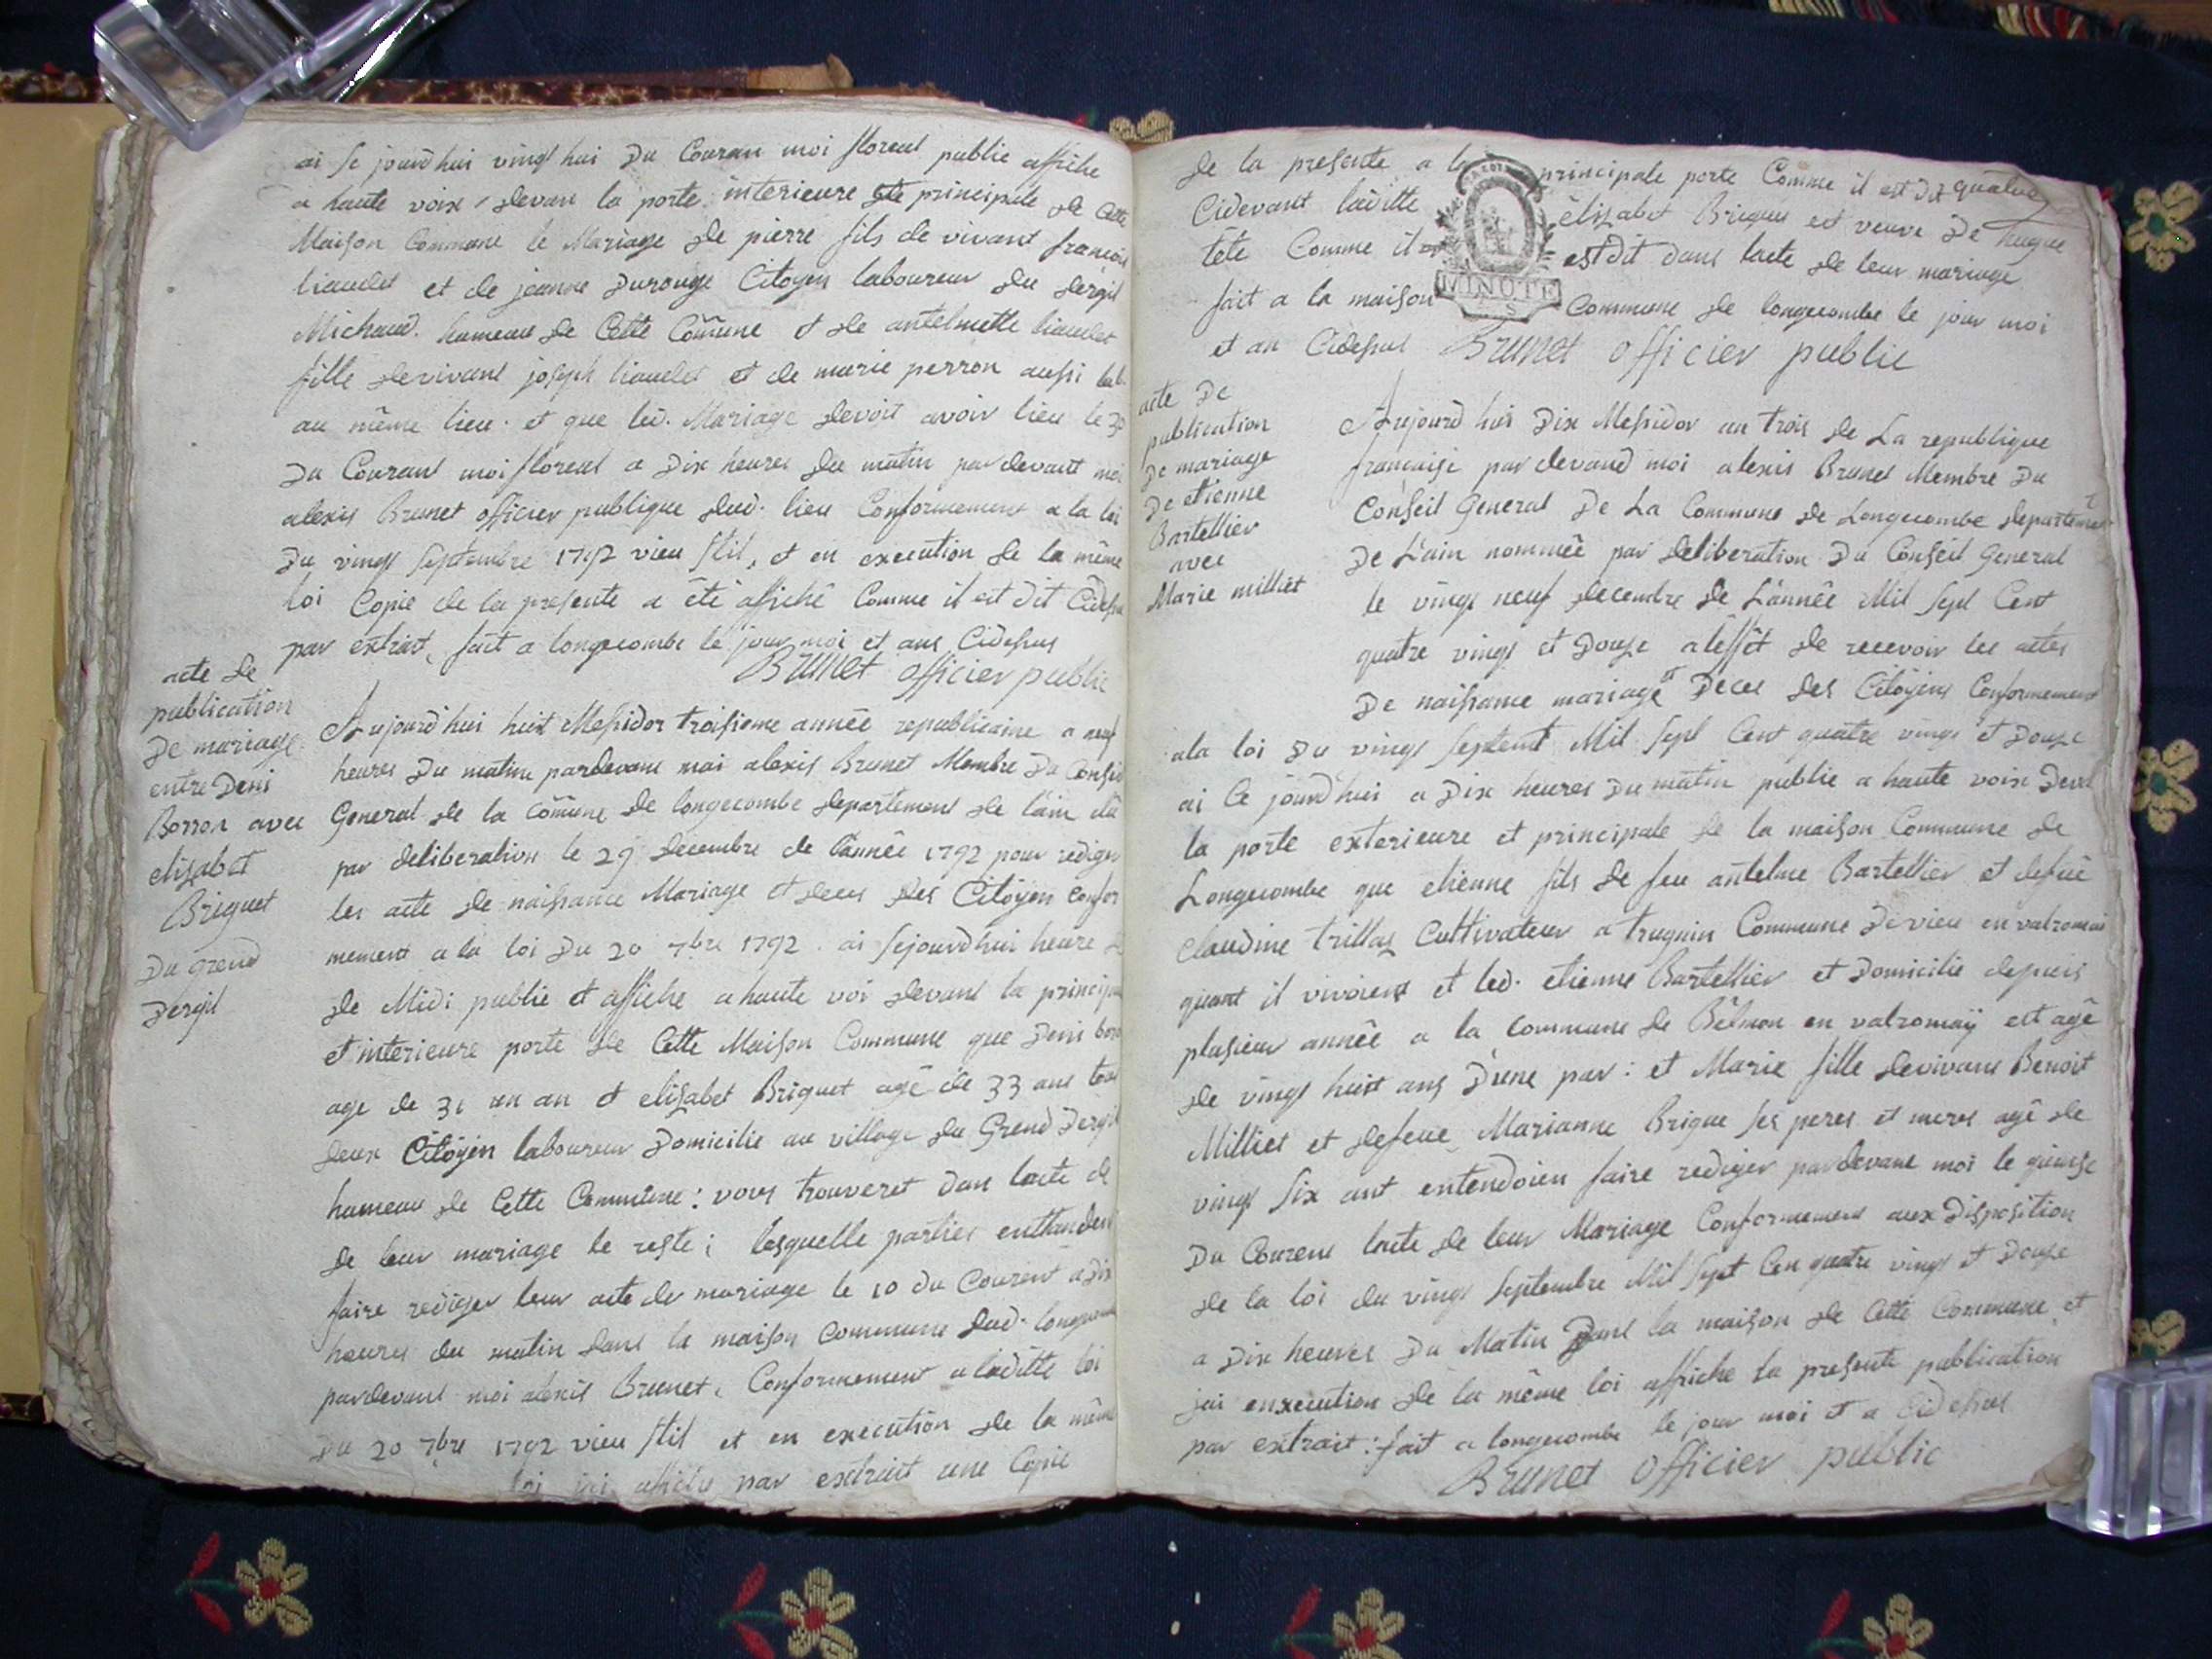 ai se jourdhui vingt hui Du Couran moi floreal publie affiche
a haute voix devan la porte interieure et principale de Cette
Maison Commune le Mariage de pierre fils de vivant francois
liaudet et de jeanne Durouge Citoyen laboureur du dergit
Michaud. hameau de Cette Cõmune et de antelmette liaudet
fille devivant joseph liaudet et de marie perron aussi lab.
au même lieu. et que led. Mariage devoit avoir lieu le 30
Du Courant moi floreal a Dix heures du matin par devant moi
alexis Brunet officier publique dud. lieu Conformement a la loi
Du vingt septembre 1792 vieu stil, et en execution de la même
loi Copie de la presente a été affiché Comme il est dit Cidessu
par extrait, fait a longecombe le jour moi et ans Cidessus
Brunet officier public
acte de
publication
De mariage
entre Deni
Borron avec
elisabet
Briquet
Du grend
Dergit
Aujourd'hui huit Messidor troisieme année republicaine a neuf
heures Du matin pardevant moi alexis Brunet Membre Du Conseil
General de la Cõmune de longecombe departement de l'ain élu
par deliberation le 29 decembre de l'année 1792 pour rediger
les acte de naissance Mariage et deces des Citoyen Confor
mement a la loi Du 20 7bre 1792. ai sejourdhui heure
de Midi publie et affiche a haute voi devant la principale
et interieure porte de Cette Maison Commune que Deni
age de 31 un an et elisabet Briquet agé de 33 ans tous
deux Citoyen laboureur Domicilie au village du Grend Dergit
hameau de Cette Commune: vous trouveret dan lacte de
de leur mariage le reste; lesquelle parties enthandent
faire rediger leur acte de mariage le 10 du Courent a dix
heures du matin dans la maison Commune dud. longecombe
pardevant moi alexis Brunet, Conformement a laditte loi
Du 20 7bre 1792 vieu stil et en execution de la même
loi jai affiche par extrait une Copie
de la presente a la principale porte Comme il est dit
Cidevant laditte élisabet Briquet est veuve De hugue
tete Comme il est dit dans lacte de leur mariage
fait a la maison Commune de longecombe le jour moi
MINUTE
et an Cidessus Brunet officier public
acte De
publication
De mariage
De etienne
Bartellier
avec
Marie milliet
Aujourd hui Dix Messidor an trois de La republique
francaise par devand moi alexis Brunet Membre Du
Conseil General De La Commune de Longecombe departement
De L'ain nommée par deliberation Du Conseil General
le vingt neuf decembre de L'année Mil sept Cent
quatre vingt et Douze a leffét de recevoir les actes
De naissance mariage et Deces des Citoyens Conformement
ala loi Du vingt septemt Mil sept Cent quatre vingt et Douze
ai Ce jourd'hui a Dix heures Du matin publie a haute voix Devt
la porte exterieure et principale de la maison Commune de
Longecombe que etienne fils de feu antelme Bartellier et defuë
Claudine trillaz Cultivateur a truguin Commune De vieu en valromai
quant il vivoient et led. etienne Bartellier et Domicilie depuis
plusieur année a la Commune de Bélmon en valromaÿ est agé
de vingt huit ans D'une par: et Marie fille devivant Benoit
Milliet et defeue Marianne Brigue ses peres et meres agé de
vingt six ant entendoien faire rediger pardevant moi le quinze
Du Courent lacte de leur Mariage Conformement aux Disposition
de la loi du vingt septembre Mil sept Cen quatre vingt et Douze
a Dix heures Du Matin Dans la maison de Cette Commune, et
jai enxecution de la même loi affiche la presente publication
par extrait: fait a longecombe le jour moi et a Cidessus
Brunet officier public